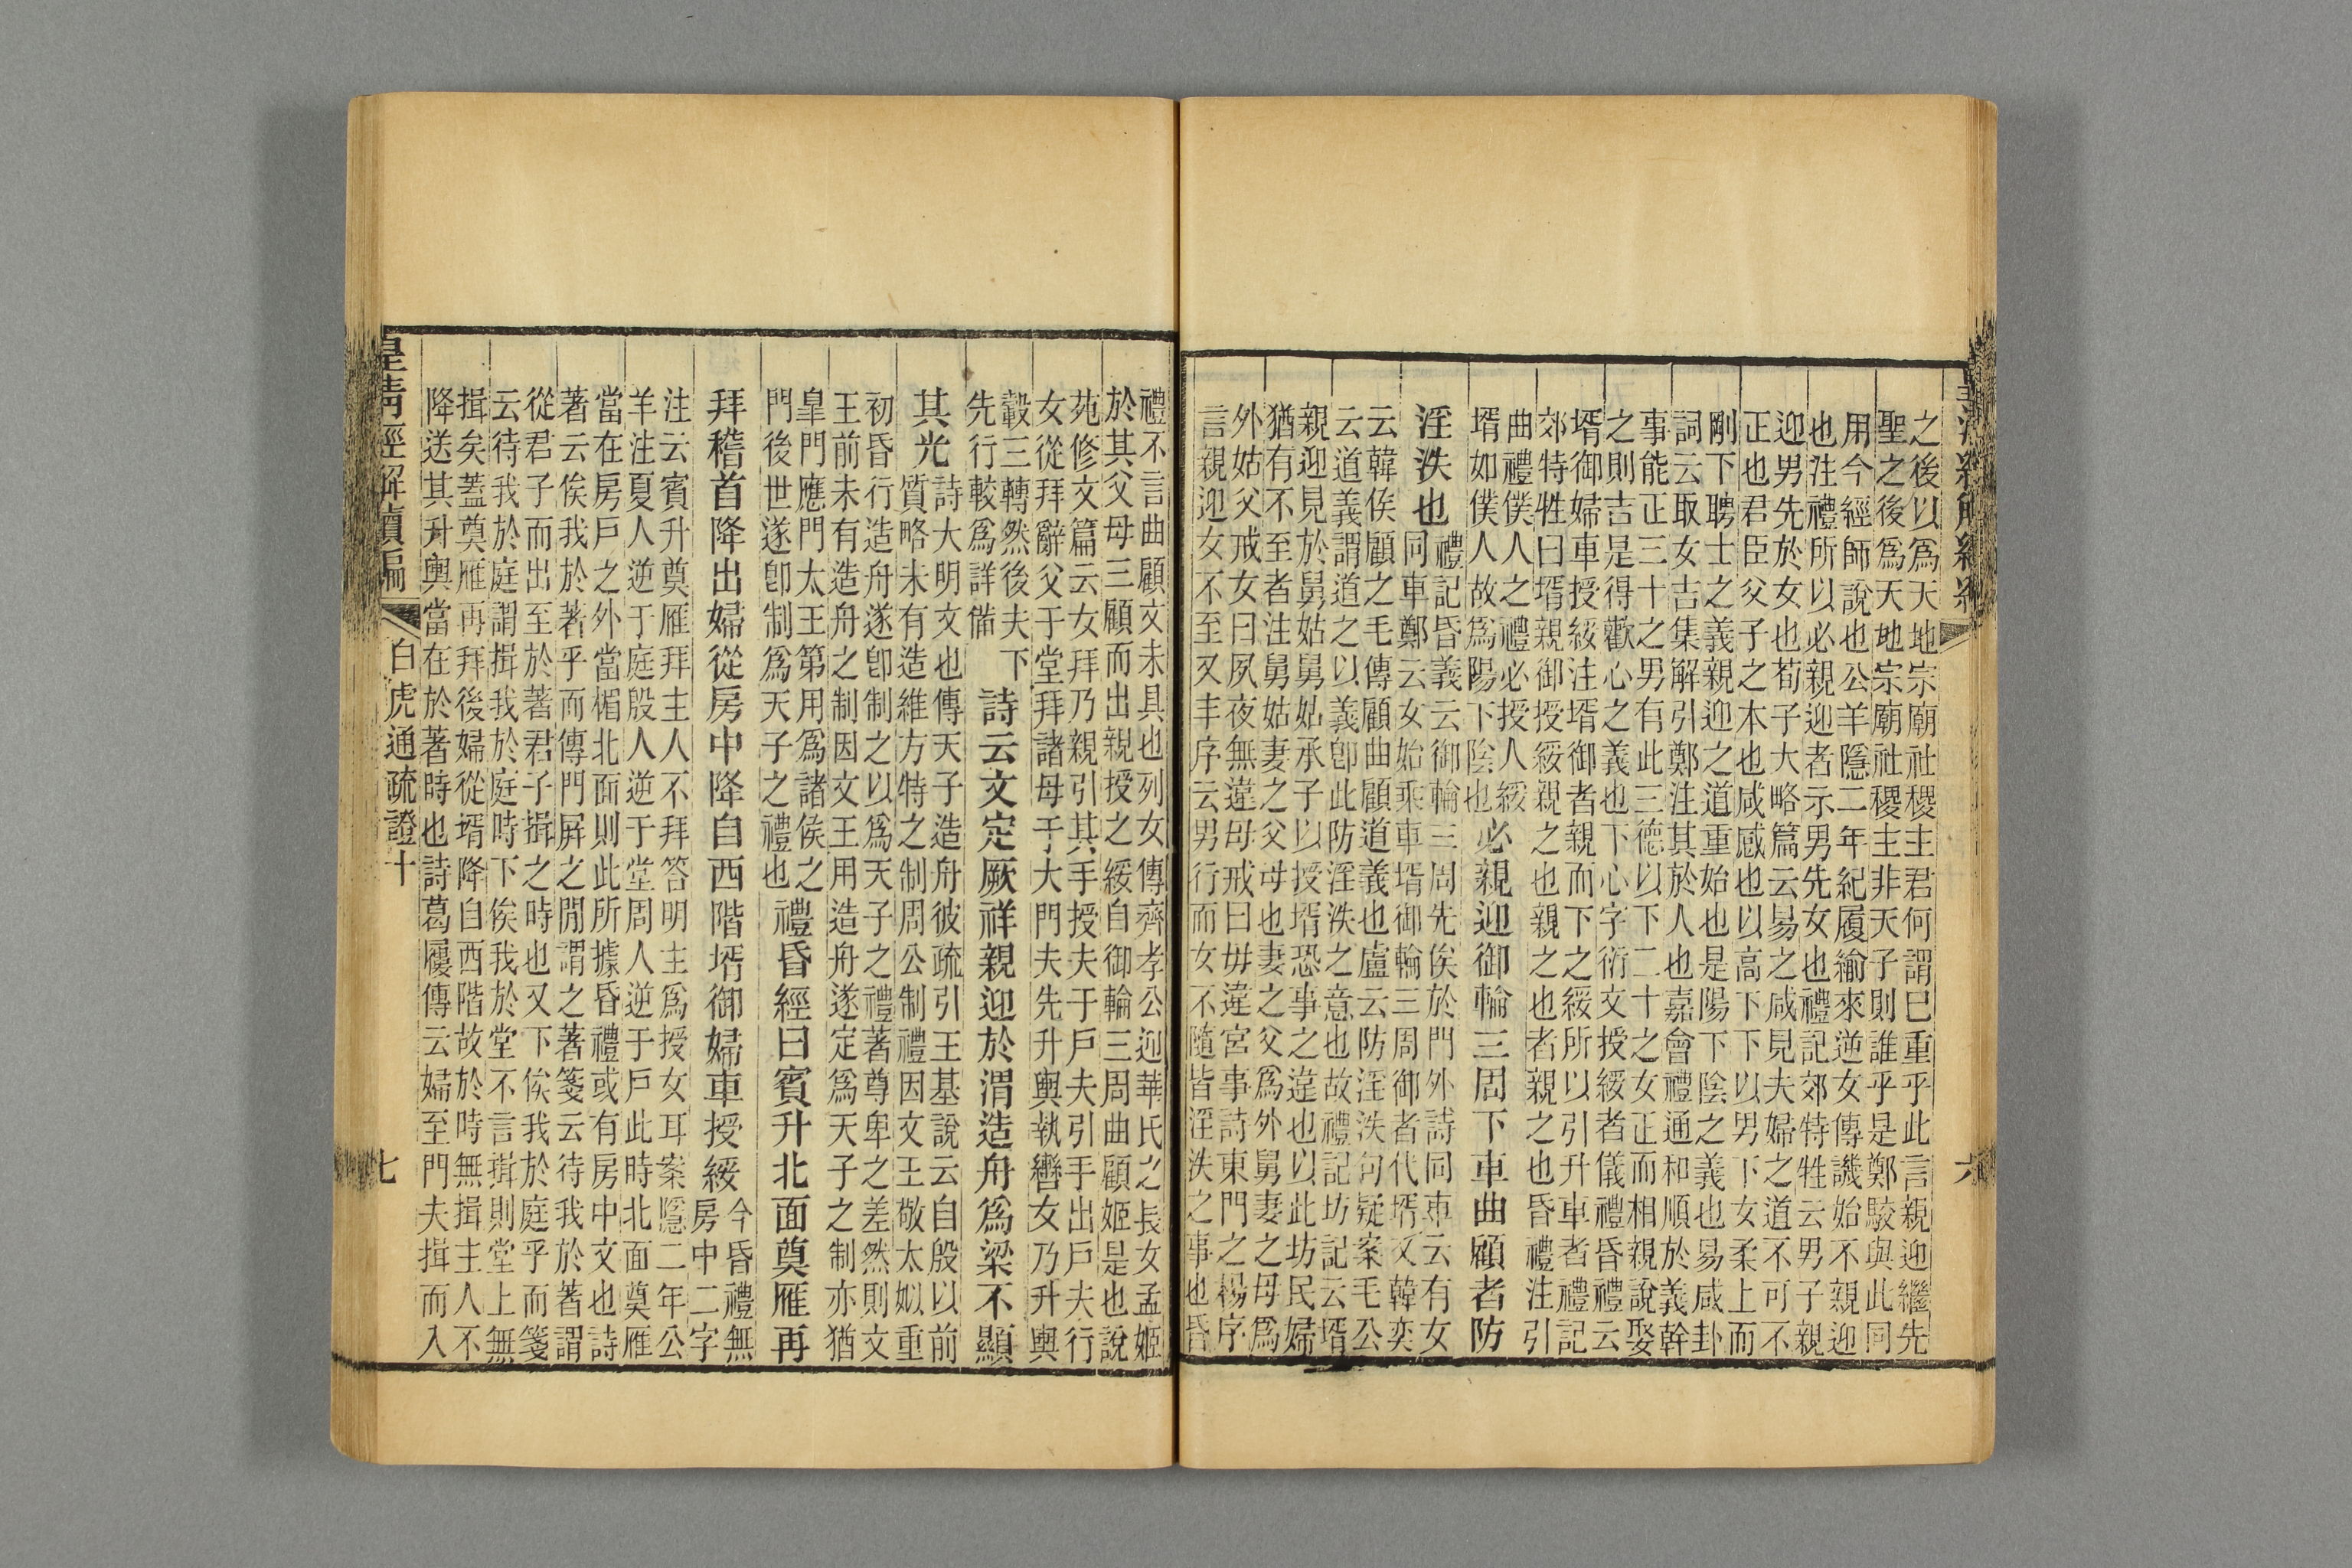 之後以爲天地宗廟社稷主君何謂巳重乎此言親迎繼先
聖之後爲天地宗廟社稷主非天子則誰乎是鄭駮與此同
用今經師說也公羊隱二年紀履緰來逆女傳譏始不親迎
也注禮所以必親迎者示男先女也禮記郊特牲云男子親
迎男先於女也荀子大略篇云易之咸見夫婦之道不可不
正也君臣父子之本也咸感也以高下下以男下女柔上而
剛下聘士之義親迎之道重始也是陽下陰之義也易咸卦
詞云取女吉集解引鄭注其於人也嘉會禮通和順於義幹
事能正三十之男有此三德以下二十之女正而相親說娶
之則吉是得歡心之義也下心字衍文授綏者儀禮昏禮云
壻御婦車授綏注壻御者親而下之綏所以引升車者禮記
郊特牲曰壻親御授綏親之也親之也者親之也昏禮注引
曲禮僕人之禮必授人綏
壻如僕人故爲陽下陰也
必親迎御輪三周下車曲顧者防
淫泆也
禮記昏義云御輪三周先俟於門外詩同車云有女
同車鄭云女始乘車壻御輪三周御者代壻又韓奕
云韓侯顧之毛傳顧曲顧道義也盧云防淫泆句疑案毛公
云道義謂道之以義卽此防淫泆之意也故禮記坊記云壻
親迎見於舅姑舅姑承子以授壻恐事之違也以此坊民婦
猶有不至者注舅姑妻之父母也妻之父爲外舅妻之母爲
外姑父戒女曰夙夜無違母戒曰毋違宮事詩東門之楊序
言親迎女不至又丰序云男行而女不隨皆淫泆之事也昏
六
禮不言曲顧文未具也列女傳齊孝公迎華氏之長女孟姬
於其父母三顧而出親授之綏自御輪三周曲顧姬是也說
苑修文篇云女拜乃親引其手授夫于戶夫引手出戶夫行
女從拜辭父于堂拜諸母于大門夫先升輿執轡女乃升輿
轂三轉然後夫下
先行較爲詳備
詩云文定厥祥親迎於渭造舟爲梁不顯
其光
詩大明文也傳天子造舟彼疏引王基說云自殷以前
質略未有造維方特之制周公制禮因文王敬太姒重
初昏行造舟遂卽制之以爲天子之禮著尊卑之差然則文
王前未有造舟之制因文王用造舟遂定爲天子之制亦猶
皐門應門太王第用爲諸侯之
門後世遂卽制爲天子之禮也
禮昏經曰賓升北面奠雁再
拜稽首降出婦從房中降自西階壻御婦車授綏
今昏禮無
房中二字
注云賓升奠雁拜主人不拜答明主爲授女耳案隱二年公
羊注夏人逆于庭殷人逆于堂周人逆于戶此時北面奠雁
當在房戶之外當楣北面則此所據昏禮或有房中文也詩
著云俟我於著乎而傳門屏之閒謂之著箋云待我於著謂
從君子而出至於著君子揖之時也又下俟我於庭乎而箋
云待我於庭謂揖我於庭時下俟我於堂不言揖則堂上無
揖矣蓋奠雁再拜後婦從壻降自西階故於時無揖主人不
降送其升輿當在於著時也詩葛屨傳云婦至門夫揖而入
皇淸經解續編
白虎通疏證十
七